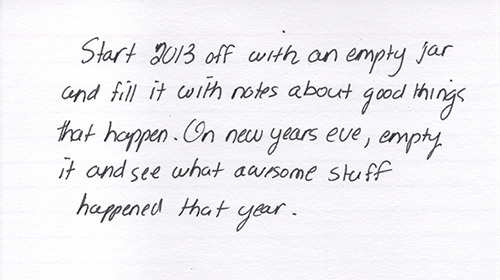 Start 2013 off with an empty jar
and fill it with notes about good things
that happen. On new years eve, empty
it and see what awesome stuff
happened that year.